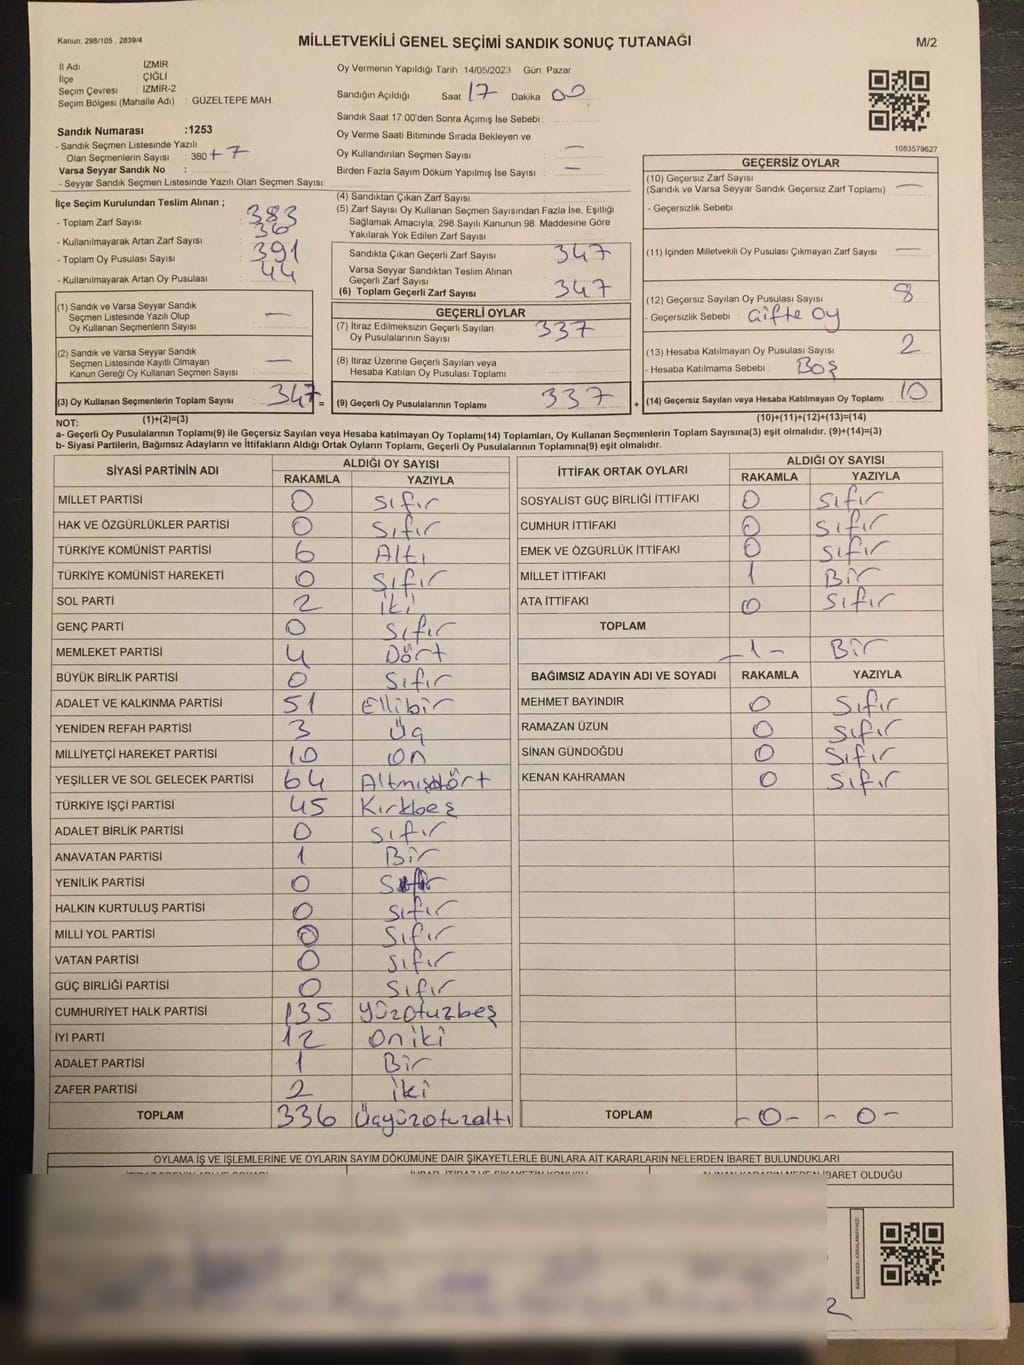 Kanun: 298/105 , 2839/4
MİLLETVEKİLİ GENEL SEÇİMİ SANDIK SONUÇ TUTANAĞI
M/2
İl Adı : İZMİR
İlçe : ÇİĞLİ
Seçim Çevresi : İZMİR-2
Seçim Bölgesi (Mahalle Adı) : GÜZELTEPE MAH.
Sandık Numarası :1253
- Sandık Seçmen Listesinde Yazılı
Olan Seçmenlerin Sayısı : 380 + 7
Varsa Seyyar Sandık No :
- Seyyar Sandık Seçmen Listesinde Yazılı Olan Seçmen Sayısı:
Oy Vermenin Yapıldığı Tarih :14/05/2023 Gün: Pazar
Sandığın Açıldığı Saat 17 Dakika 00
Sandık Saat 17:00'den Sonra Açımış İse Sebebi :
Oy Verme Saati Bitiminde Sırada Bekleyen ve
Oy Kullandırılan Seçmen Sayısı : —
Birden Fazla Sayım Döküm Yapılmış İse Sayısı : —
1083579627
İlçe Seçim Kurulundan Teslim Alınan ;
- Toplam Zarf Sayısı : 383
- Kullanılmayarak Artan Zarf Sayısı : 36
- Toplam Oy Pusulası Sayısı : 391
- Kullanılmayarak Artan Oy Pusulası : 44
(1) Sandık ve Varsa Seyyar Sandık
Seçmen Listesinde Yazılı Olup
Oy Kullanan Seçmenlerin Sayısı : —
(2) Sandık ve Varsa Seyyar Sandık
Seçmen Listesinde Kayıtlı Olmayan
Kanun Gereği Oy Kullanan Seçmen Sayısı : —
(3) Oy Kullanan Seçmenlerin Toplam Sayısı : 347 =
(1)+(2)=(3)
(4) Sandıktan Çıkan Zarf Sayısı :
(5) Zarf Sayısı Oy Kullanan Seçmen Sayısından Fazla İse, Eşitliği
Sağlamak Amacıyla, 298 Sayılı Kanunun 98. Maddesine Göre
Yakılarak Yok Edilen Zarf Sayısı
Sandıkta Çıkan Geçerli Zarf Sayısı : 347
Varsa Seyyar Sandıktan Teslim Alınan
Geçerli Zarf Sayısı :
(6) Toplam Geçerli Zarf Sayısı : 347
GEÇERLİ OYLAR
(7) İtiraz Edilmeksizin Geçerli Sayılan
Oy Pusulalarının Sayısı : 337
(8) İtiraz Üzerine Geçerli Sayılan veya
Hesaba Katılan Oy Pusulası Toplamı :
(9) Geçerli Oy Pusulalarının Toplamı : 337 +
GEÇERSİZ OYLAR
(10) Geçersiz Zarf Sayısı
(Sandık ve Varsa Seyyar Sandık Geçersiz Zarf Toplamı) : —
- Geçersizlik Sebebi :
(11) İçinden Milletvekili Oy Pusulası Çıkmayan Zarf Sayısı : —
(12) Geçersiz Sayılan Oy Pusulası Sayısı : 8
- Geçersizlik Sebebi : Çifte oy
(13) Hesaba Katılmayan Oy Pusulası Sayısı : 2
- Hesaba Katılmama Sebebi : Boş
(14) Geçersiz Sayılan veya Hesaba Katılmayan Oy Toplamı : 10
(10)+(11)+(12)+(13)=(14)
NOT:
a- Geçerli Oy Pusulalarının Toplamı(9) ile Geçersiz Sayılan veya Hesaba katılmayan Oy Toplamı(14) Toplamları, Oy Kullanan Seçmenlerin Toplam Sayısına(3) eşit olmalıdır. (9)+(14)=(3)
b- Siyasi Partilerin, Bağımsız Adayların ve İttifakların Aldığı Ortak Oyların Toplamı, Geçerli Oy Pusulalarının Toplamına(9) eşit olmalıdır.
SİYASİ PARTİNİN ADI
ALDIĞI OY SAYISI
RAKAMLA YAZIYLA
MİLLET PARTİSİ 0 Sıfır
HAK VE ÖZGÜRLÜKLER PARTİSİ 0 Sıfır
TÜRKİYE KOMÜNİST PARTİSİ 6 Altı
TÜRKİYE KOMÜNİST HAREKETİ 0 Sıfır
SOL PARTİ 2 İki
GENÇ PARTİ 0 Sıfır
MEMLEKET PARTİSİ 4 Dört
BÜYÜK BİRLİK PARTİSİ 0 Sıfır
ADALET VE KALKINMA PARTİSİ 51 Ellibir
YENİDEN REFAH PARTİSİ 3 Üç
MİLLİYETÇİ HAREKET PARTİSİ 10 On
YEŞİLLER VE SOL GELECEK PARTİSİ 64 Altmışdört
TÜRKİYE İŞÇİ PARTİSİ 45 Kırkbeş
ADALET BİRLİK PARTİSİ 0 Sıfır
ANAVATAN PARTİSİ 1 Bir
YENİLİK PARTİSİ 0 Sıfır
HALKIN KURTULUŞ PARTİSİ 0 Sıfır
MİLLİ YOL PARTİSİ 0 Sıfır
VATAN PARTİSİ 0 Sıfır
GÜÇ BİRLİĞİ PARTİSİ 0 Sıfır
CUMHURİYET HALK PARTİSİ 135 Yüzotuzbeş
İYİ PARTİ 12 Oniki
ADALET PARTİSİ 1 Bir
ZAFER PARTİSİ 2 İki
TOPLAM 336 Üçyüzotuzaltı
İTTİFAK ORTAK OYLARI
ALDIĞI OY SAYISI
RAKAMLA YAZIYLA
SOSYALİST GÜÇ BİRLİĞİ İTTİFAKI 0 Sıfır
CUMHUR İTTİFAKI 0 Sıfır
EMEK VE ÖZGÜRLÜK İTTİFAKI 0 Sıfır
MİLLET İTTİFAKI 1 Bir
ATA İTTİFAKI 0 Sıfır
TOPLAM
-1- Bir
BAĞIMSIZ ADAYIN ADI VE SOYADI RAKAMLA YAZIYLA
MEHMET BAYINDIR 0 Sıfır
RAMAZAN ÜZÜN 0 Sıfır
SİNAN GÜNDOĞDU 0 Sıfır
KENAN KAHRAMAN 0 Sıfır
TOPLAM -0- -0-
OYLAMA İŞ VE İŞLEMLERİNE VE OYLARIN SAYIM DÖKÜMÜNE DAİR ŞİKAYETLERLE BUNLARA AİT KARARLARIN NELERDEN İBARET BULUNDUKLARI
İBARET OLDUĞU